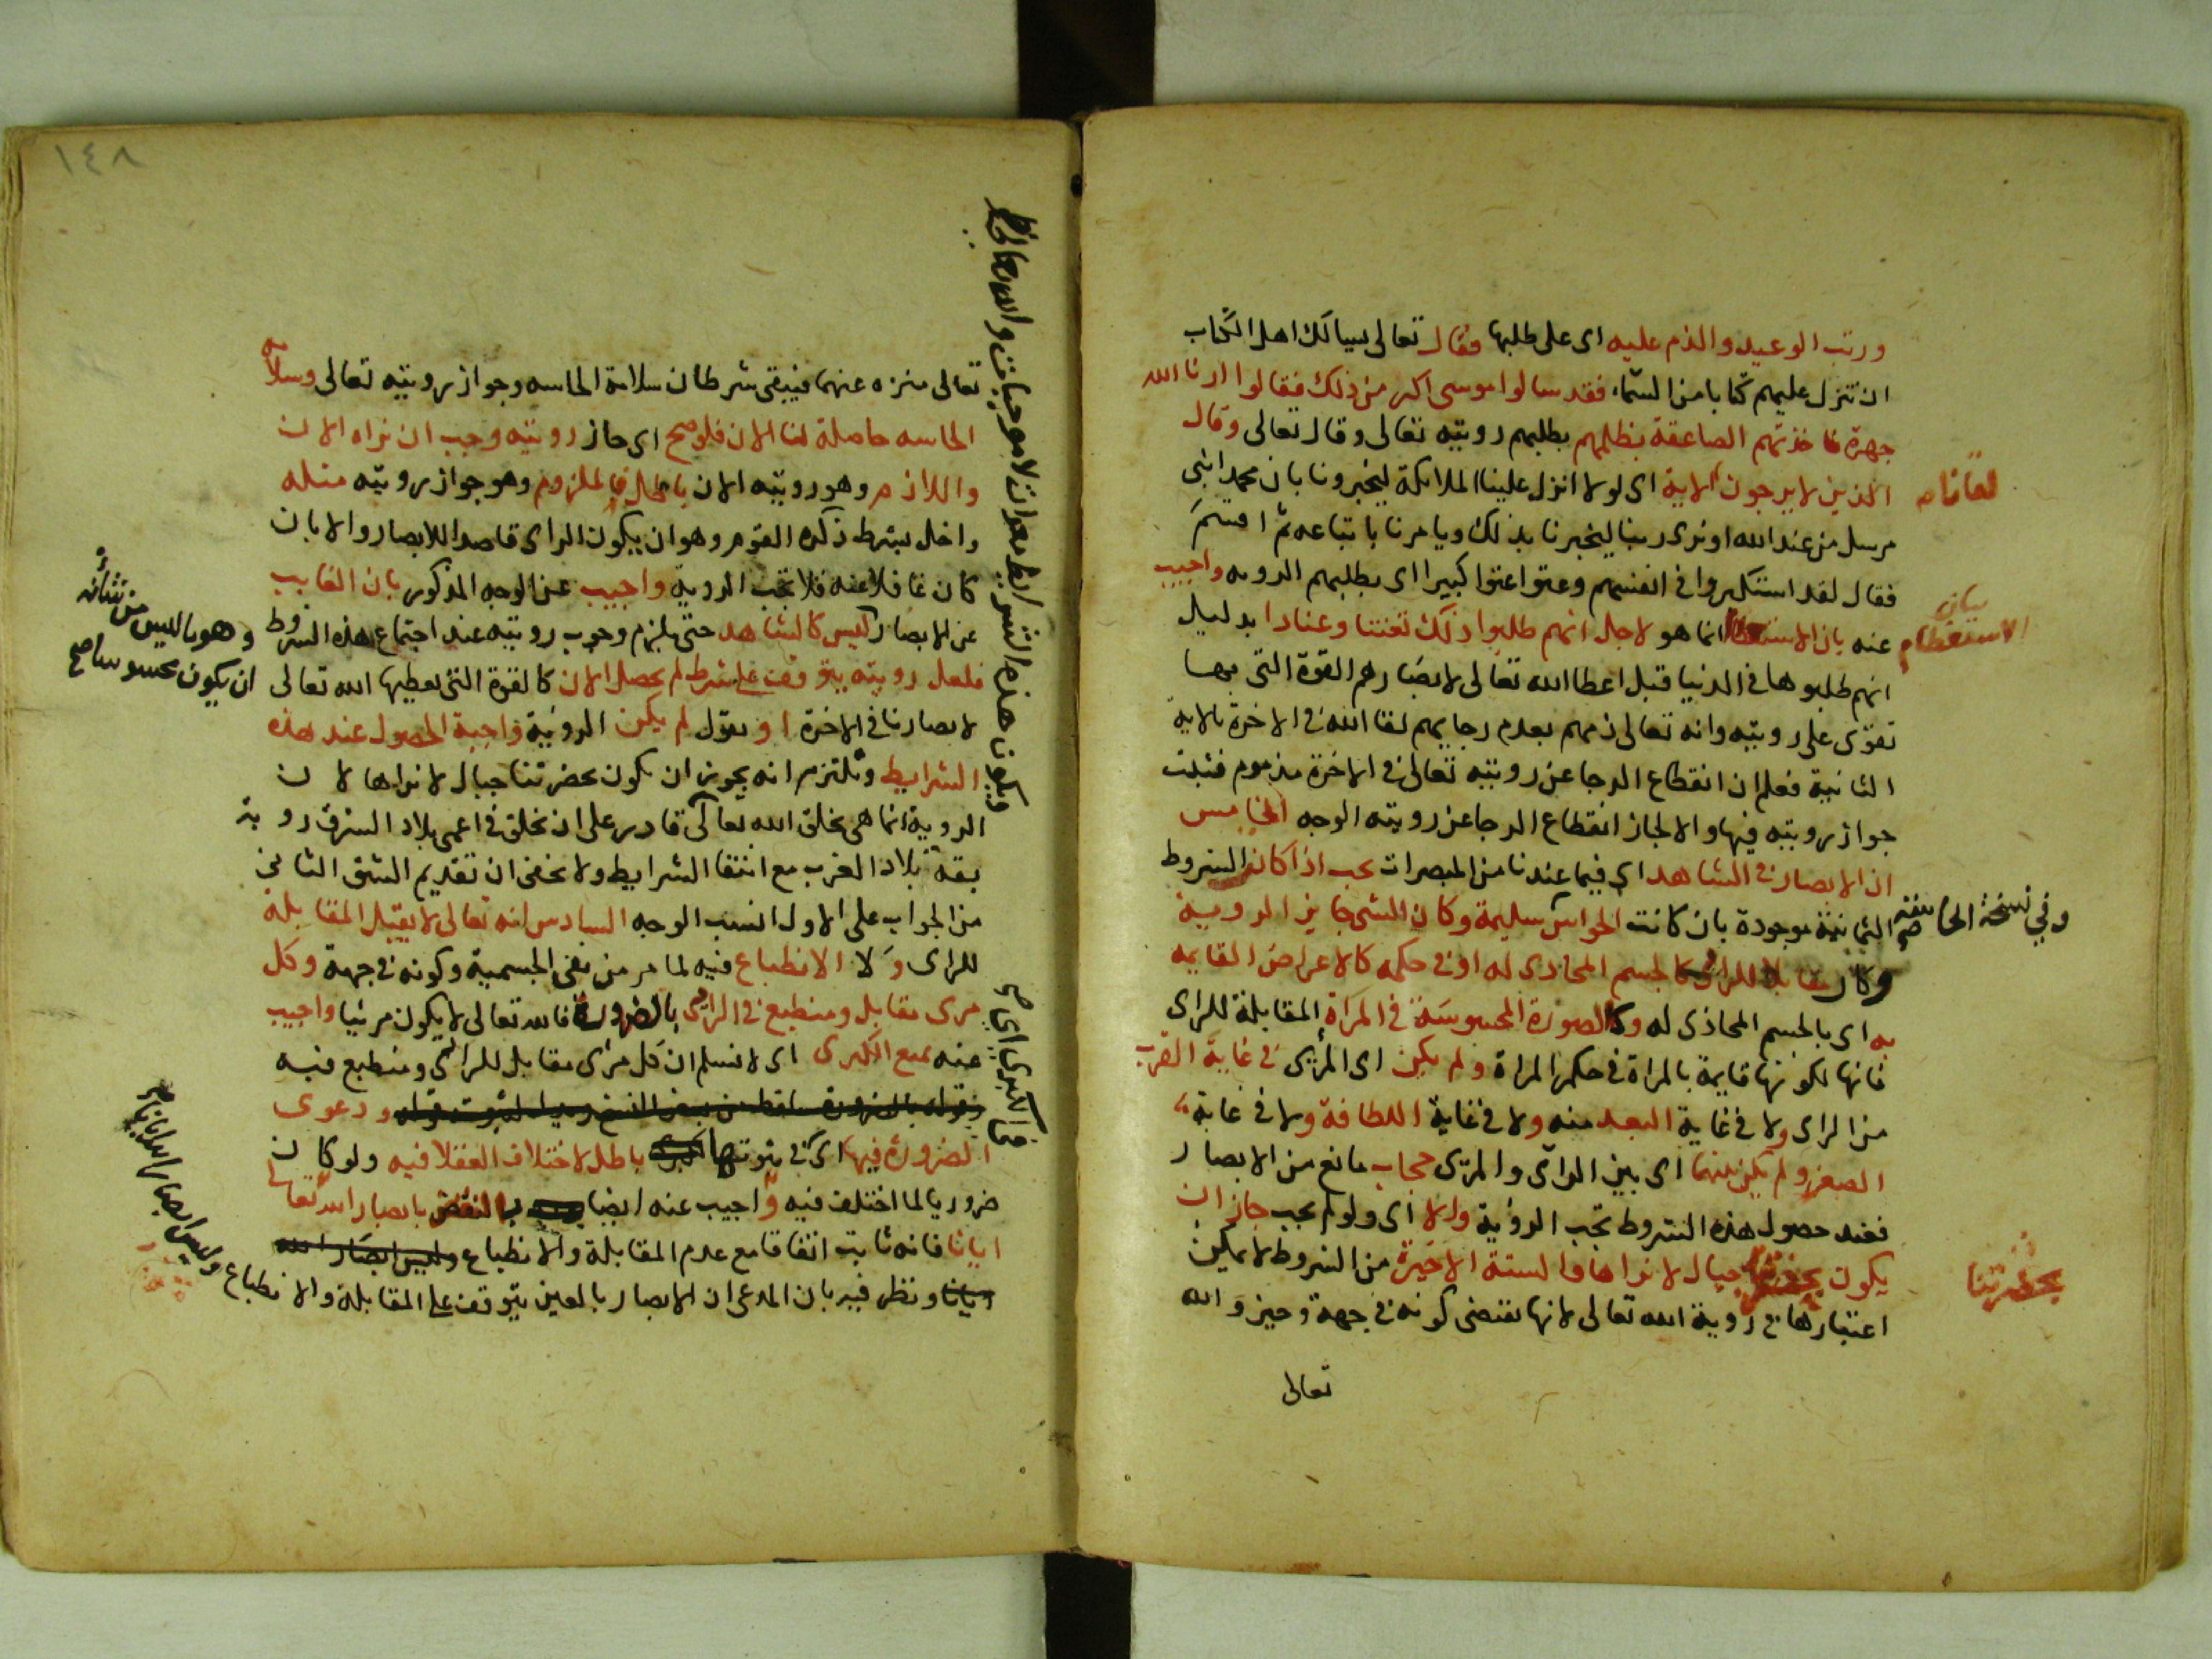 ورتب الوعيد والذم عليه اى على طلبها فقال تعالى يسالك اهل الكتاب
ان تنزل عليهم كتابا من السماء فقد سالوا موسى اكبر من ذلك فقالوا ارنا الله
جهرة فاخذتهم الصاعقة بظلمهم بطلبهم رويته تعالى وقال تعالى وقال
الذين لا يرجون الاية اى لولا انزل علينا الملائكة ليخبرونا بان محمدا نبى
لقانا صح
مرسل من عند الله او نرى ربنا ليخبرنا بذلك ويامرنا باتباعه ثم اقسم
فقال لقد استكبروا فى انفسهم وعتوا عتوا كبيرا اى بطلبهم الرويه واجيب
عنه بان الاستعظام انما هو لاجل انهم طلبوا ذلك تعنتا وعنادا بدليل
بيان
الاستعظام
انهم طلبوها فى الدنيا قبل اعطا الله تعالى لابصارهم القوة التى بها
تقوى على رويته وانه تعالى ذمهم بعدم رجايهم لقا الله فى الاخرة بالاية
الثانية فعلم ان انقطاع الرجا عن رويته تعالى فى الاخرة مذموم فثبت
جواز رويته فيها والا لجاز انقطاع الرجا عن رويته الوجه الخامس
ان الابصار فى الشاهد اى فيما عندنا من المبصرات يجب اذا كانت الشروط
الثمانية موجودة بان كانت الحواس سليمة وكان الشى جايز الروية
وفي نسخة الحاسة صح
وكان مقابلا للراى كالجسم المحاذى له او فى حكمه كالاعراض القايمه
به اى بالجسم المحاذى له وكالصورة المحسوسة فى المرآة المقابلة للراى
فانها لكونها قايمة بالمراة فى حكم المراة ولم يكن اى المرئى فى غاية القرب
من الراى ولا فى غاية البعد منه ولا فى غاية اللطافة ولا فى غاية
الصغر ولم يكن بينهما اى بين الرآى والمرئى حجاب مانع من الابصار
فعند حصول هذه الشروط تجب الروية والا اى ولو لم يجب جاز ان
يكون بحضرتنا جبال لا نراها والستة الاخيرة من الشروط لا يمكن
بحضرتنا
اعتبارها فى روية الله تعالى لانها تقتضى كونه فى جهة وحيز والله
تعالى
١٤٨
تعالى منزه عنهما فيبقى شرطان سلامة الحاسه وجواز رويته تعالى وسلامة
الحاسه حاصلة لنا الان فلو صح اى جاز رويته وجب ان نراه الان
واللازم وهو رويته الان باطل فالملزوم وهو جواز رويته مثله
واخل بشرط ذكره القوم وهو ان يكون الراى قاصدا للابصار والا بان
كان غافلا عنه فلا تجب الروية واجيب عن الوجه المذكور بان الغايب
عن الابصار ليس كالشاهد حتى يلزم وجوب رويته عند اجتماع هذه الشروط
وهو ما ليس من شانه
ان يكون محسوسا صح
فلعل رويته يتوقف على شرط لم يحصل الان كالقوة التى يعطيها الله تعالى
لابصارنا فى الاخرة او نقول لم يكن الروية واجبة الحصول عند هذه
الشرايط ونلتزم انه يجوز ان يكون بحضرتنا جبال لا نراها لان
ويكون هذه الشرايط معدات لا موجبات والله تعالى
الروية انما هى بخلق الله تعالى قادر على ان يخلق فى اعمى بلاد الشرق روية
بقة بلاد الغرب مع انتفا الشرايط ولا يخفى ان تقديم الشق الثانى
من الجواب على الاول انسب الوجه السادس انه تعالى لا يقبل المقابلة
للراى ولا الانطباع فيه لما مر من نفى الجسمية وكونه فى جهة وكل
مرى مقابل ومنطبع فى الرائى بالضرورة فالله تعالى لا يكون مرئيا واجيب
عنه بمنع الكبرى اى لا نسلم ان كل مرئى مقابل للرائى ومنطبع فيه
ودعوى
الضرورة فيها اى فى ثبوتها باطل لاختلاف العقلا فيه ولو كان
ضروريا لما اختلف فيه واجيب عنه ايضا بالنقض بابصار الله تعالى
ايانا فانه ثابت اتفاقا مع عدم المقابلة والانطباع وليس ابصار الله
ايانا ونظر فيه بان المدعى ان الابصار بالعين يتوقف على المقابلة والانطباع
وليس ابصار الله ايانا صح